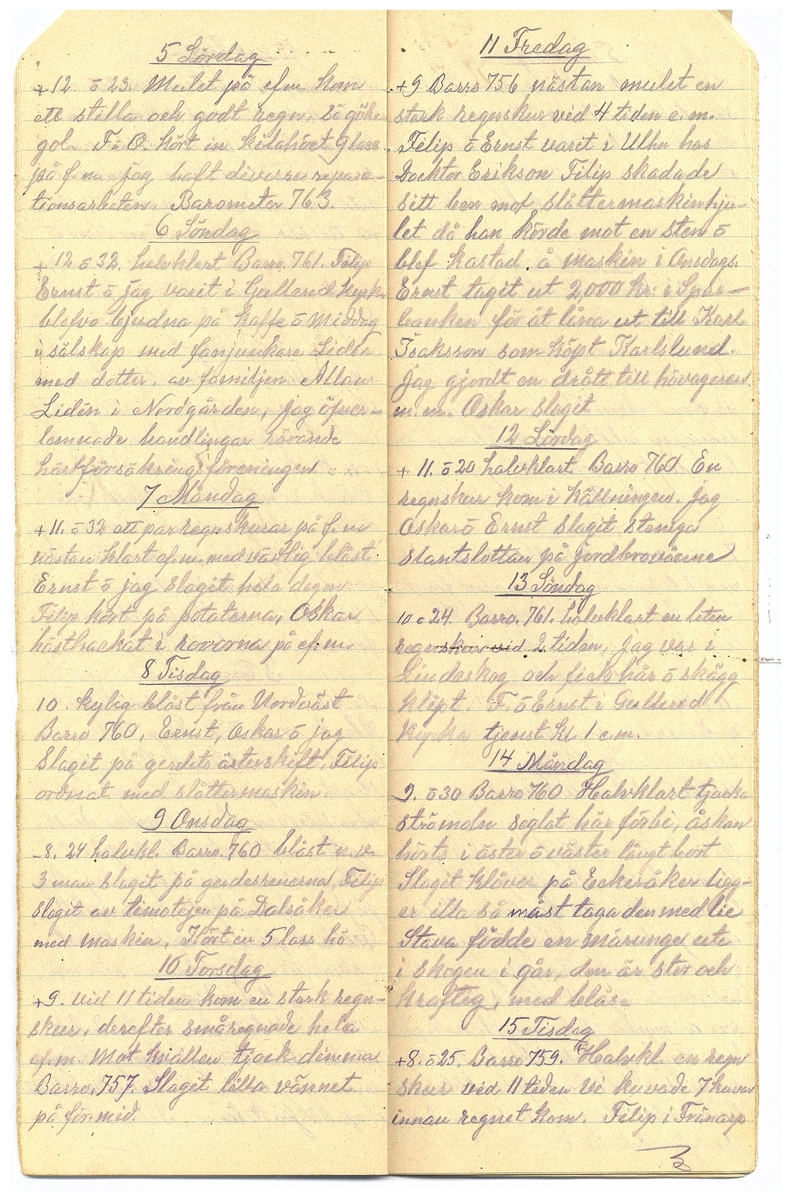 5 Lördag
+12 ö 23. Mulet på efm. kom
ett stilla och godt regn. Så göken
gol. F. ö O. kört in lass
på f.m. jag haft diverse repara-
tionsarbeten. Barometer 763.
6 Söndag
+ 12 ö 32. halvklart Barro. 761. Filip
Ernst ö jag varit i Gullered kyrk
blefvo bjudna på kaffe ö Middag
i sälskap med fanjunkare Lidén
med dotter. av familjen Allan
Lidén i Nordgården, jag öfver-
lemnade handlingar rörande
föreningen
7 Måndag
+11. ö 32 ett par regnskurar på f.m
nästan klart ef.m. med västlig blåst.
Ernst ö jag slagit hela dagen
Filip kört på potaterna, Oskar
hästhackat i rovorna på ef.m.
8 Tisdag
10. kylig blåst från Nordväst
Barro 760, Ernst, Oskar ö jag
Slagit på gerdets österskift. Filip
ordnat med slåttermaskin.
9 Onsdag
8. 24 halvkl. Barro. 760 blåst n.v
3 man slagit på gerdesrenerna, Filip
slagit av timotejen på Dalsåker
med maskin, Kört in 5 lass hö
10 Torsdag
+9. vid 11 tiden kom en stark regn-
skur, derefter småregnade hela
ef.m. Mot kvällen tjock dimma
Barro. 757. Slaget lilla vännet
på för.mid.
11 Fredag
+9 Barro 756 nästan mulet en
stark regnskur vid 4 tiden e.m.
Filip ö Ernst varit i Ulhn hos
Docktor Erikson Filip skadade
sitt ben mot slåttermaskinhju-
let då han körde mot en sten ö
blef kastad. å maskin i Onsdags.
Ernst tagit ut 2,000 kr. i Spar-
banken för åt låna ut till Karl
Isaksson som köpt Karlslund.
Jag gjordt en drått till hövagnen
m.m. Oskar slagit
12 Lördag
+ 11. ö 20 halvklart Barro 760 En
regnskur kom i kvällningen. jag
Oskar ö Ernst slagit steniga
på
13 Söndag
10 o 24. Barro. 761. halvklart en liten
regnskur vid 2 tiden, jag var i
Lindeskog och fick hår ö skägg
klipt. F. ö Ernst i Gullered
kyrka tjenst kl. 1 e.m.
14 Måndag
9. ö 30 Barro 760 Halvklart tjocka
Strömoln seglat här förbi, åskan
hörts i öster ö väster långt bort
Slagit klöver på Eckeråker ligg-
er illa så måst taga den med lie
Stava födde en märunge ute
i skogen i går, den är stor och
kraftig, med bläse
15 Tisdag
+8. ö 25. Barro 759. Halvkl. en regn
skur vid 11 tiden Vi kuvade 7 kuvor
innan regnet kom. Filip i Trånarp